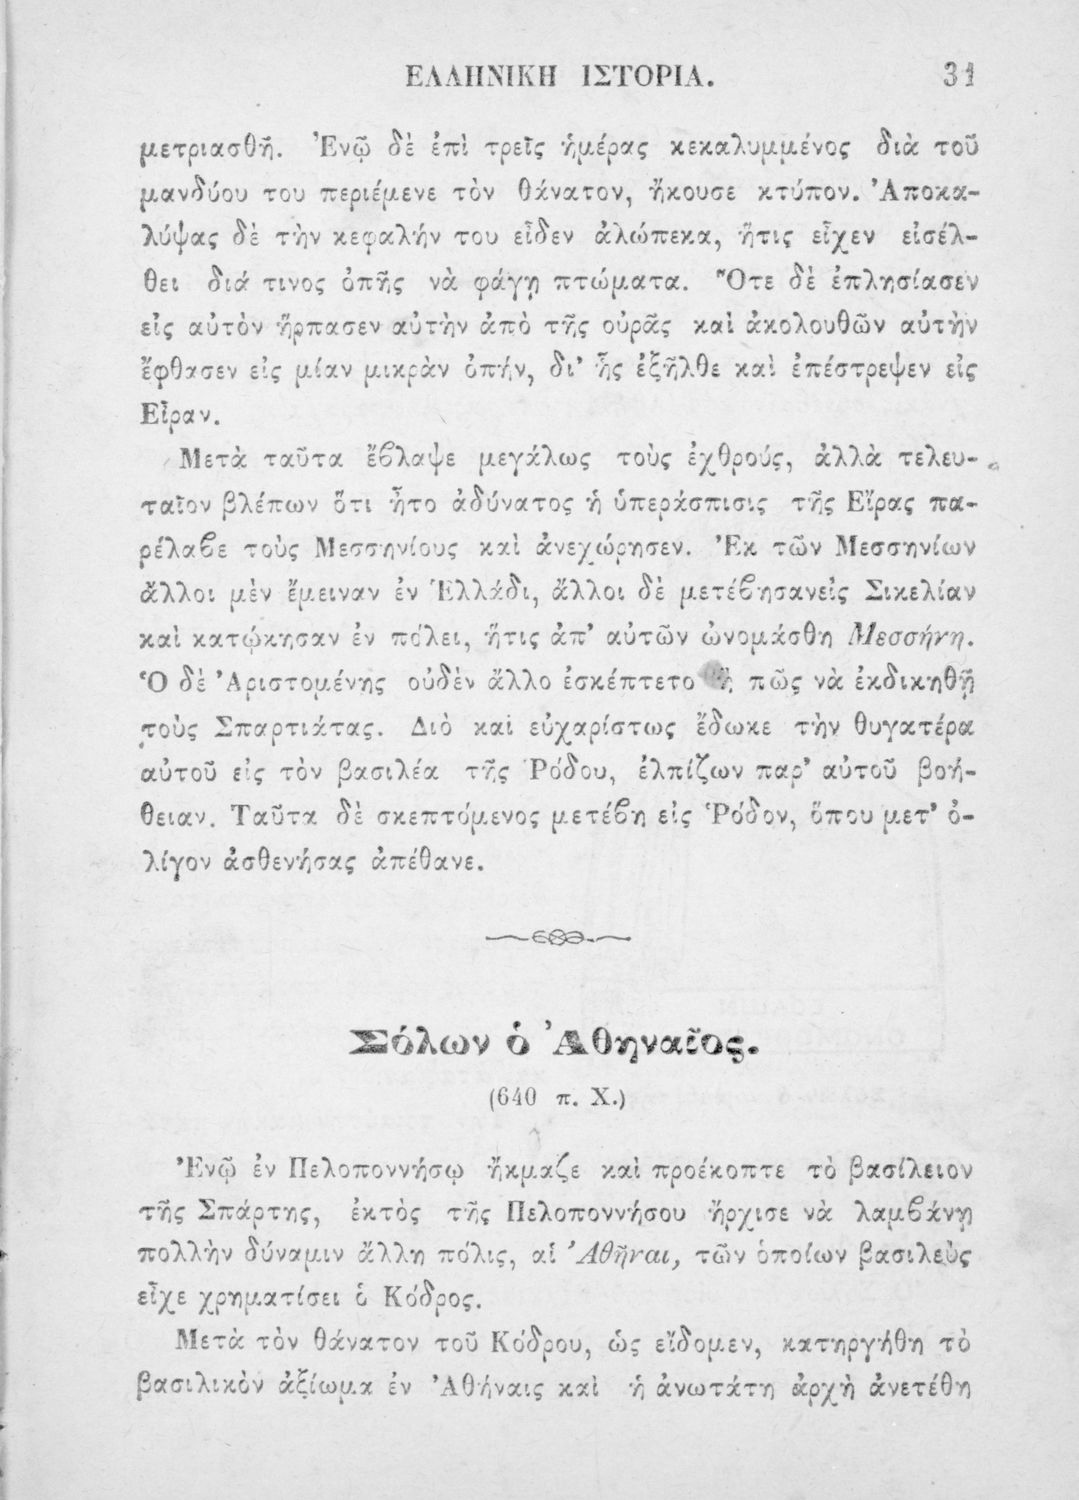 ΕΛΛΗΝΙΚΗ ΙΣΤΟΡΙΑ. 31
μετριασθῇ. Ἐνῷ δὲ ἐπὶ τρεῖς ἡμέρας κεκαλυμμένος διὰ τοῦ
μανδύου του περιέμενε τὸν θάνατον, ἤκουσε κτύπον. Ἀποκα-
λύψας δὲ τὴν κεφαλήν του εἶδεν ἀλώπεκα, ἥτις εἶχεν εἰσέλ-
θει διά τινος ὀπῆς νὰ φάγῃ πτώματα. Ὅτε δὲ ἐπλησίασεν
εἰς αὐτὸν ἥρπασεν αὐτὴν ἀπὸ τῆς οὐρᾶς καὶ ἀκολουθῶν αὐτὴν
ἔφθασεν εἰς μίαν μικρὰν ὀπήν, δι' ἧς ἐξῆλθε καὶ ἐπέστρεψεν εἰς
Εἶραν.
Μετὰ ταῦτα ἔϐλαψε μεγάλως τοὺς ἐχθρούς, ἀλλὰ τελευ-
ταῖον βλέπων ὅτι ἦτο ἀδύνατος ἡ ὑπεράσπισις τῆς Εἴρας πα-
ρέλαϐε τοὺς Μεσσηνίους καὶ ἀνεχώρησεν. Ἐκ τῶν Μεσσηνίων
ἄλλοι μὲν ἔμειναν ἐν Ἑλλάδι, ἄλλοι δὲ μετέϐησανεἰς Σικελίαν
καὶ κατῴκησαν ἐν πόλει, ἥτις ἀπ' αὐτῶν ὠνομάσθη Μεσσήνη.
Ὁ δὲ Ἀριστομένης οὐδὲν ἄλλο ἐσκέπτετο ἢ πῶς νὰ ἐκδικηθῇ
τοὺς Σπαρτιάτας. Διὸ καὶ εὐχαρίστως ἔδωκε τὴν θυγατέρα
αὐτοῦ εἰς τὸν βασιλέα τῆς Ῥόδου, ἐλπίζων παρ' αὐτοῦ βοή-
θειαν. Ταῦτα δὲ σκεπτόμενος μετέϐη εἰς Ῥόδον, ὅπου μετ' ὀ-
λίγον ἀσθενήσας ἀπέθανε.
Σόλων ὁ Ἀθηναῖος.
(640 π. Χ.)
Ἐνῷ ἐν Πελοποννήσῳ ἤκμαζε καὶ προέκοπτε τὸ βασίλειον
τῆς Σπάρτης, ἐκτὸς τῆς Πελοποννήσου ἤρχισε νὰ λαμϐάνῃ
πολλὴν δύναμιν ἄλλη πόλις, αἱ Ἀθῆναι, τῶν ὁποίων βασιλεὺς
εἶχε χρηματίσει ὁ Κόδρος.
Μετὰ τὸν θάνατον τοῦ Κόδρου, ὡς εἴδομεν, κατηργήθη τὸ
βασιλικὸν ἀξίωμα ἐν Ἀθήναις καὶ ἡ ἀνωτάτη ἀρχὴ ἀνετέθη